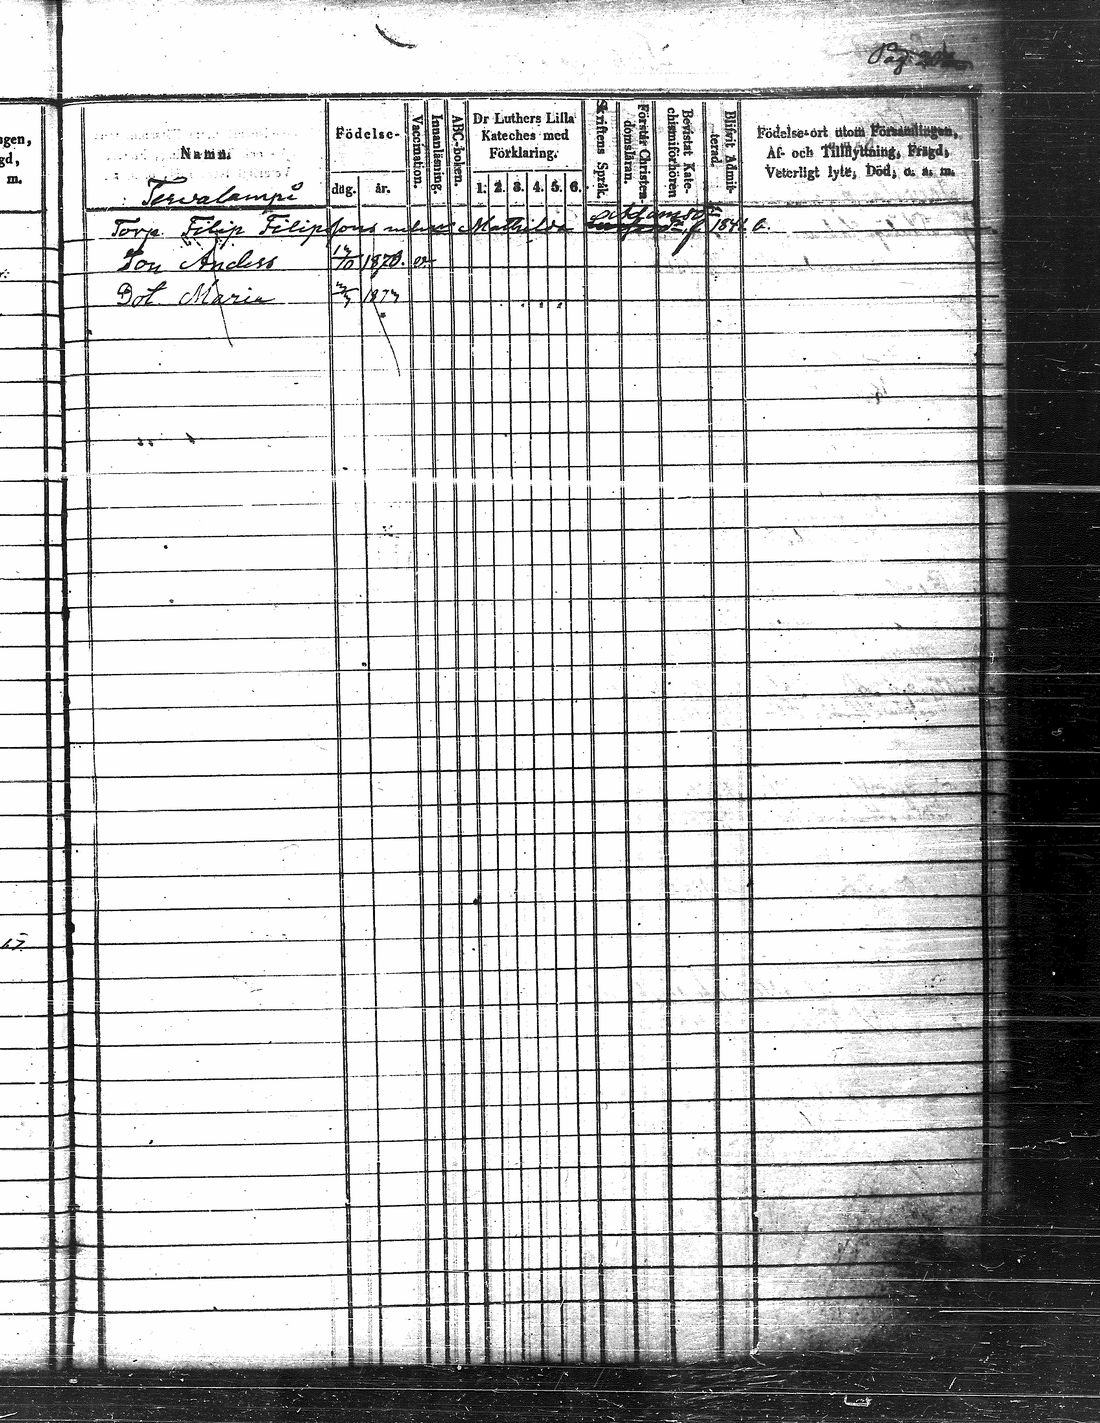 Pag. 20
Namn.
Födelse-
dag. år.
Vaccination.
Innanläsning.
ABC-boken.
Dr Luthers Lilla
Kateches med
Förklaring.
1. 2. 3. 4. 5. 6.
Skriftens Språk.
Förstår Christen-
domsläran.
Bevistat Kate-
chismiförhören
Blifvit Admit-
terad.
Födelse-ort utom Församlingen,
Af- och Tillflyttning, Frägd,
Veterligt lyte, Död, o. s. m.
Tervalampi
Torp. Filip Filipsons Mathilda f. 1841
Son Anders 1870.
Dot. Maria 187
ngen,
gd,
m.